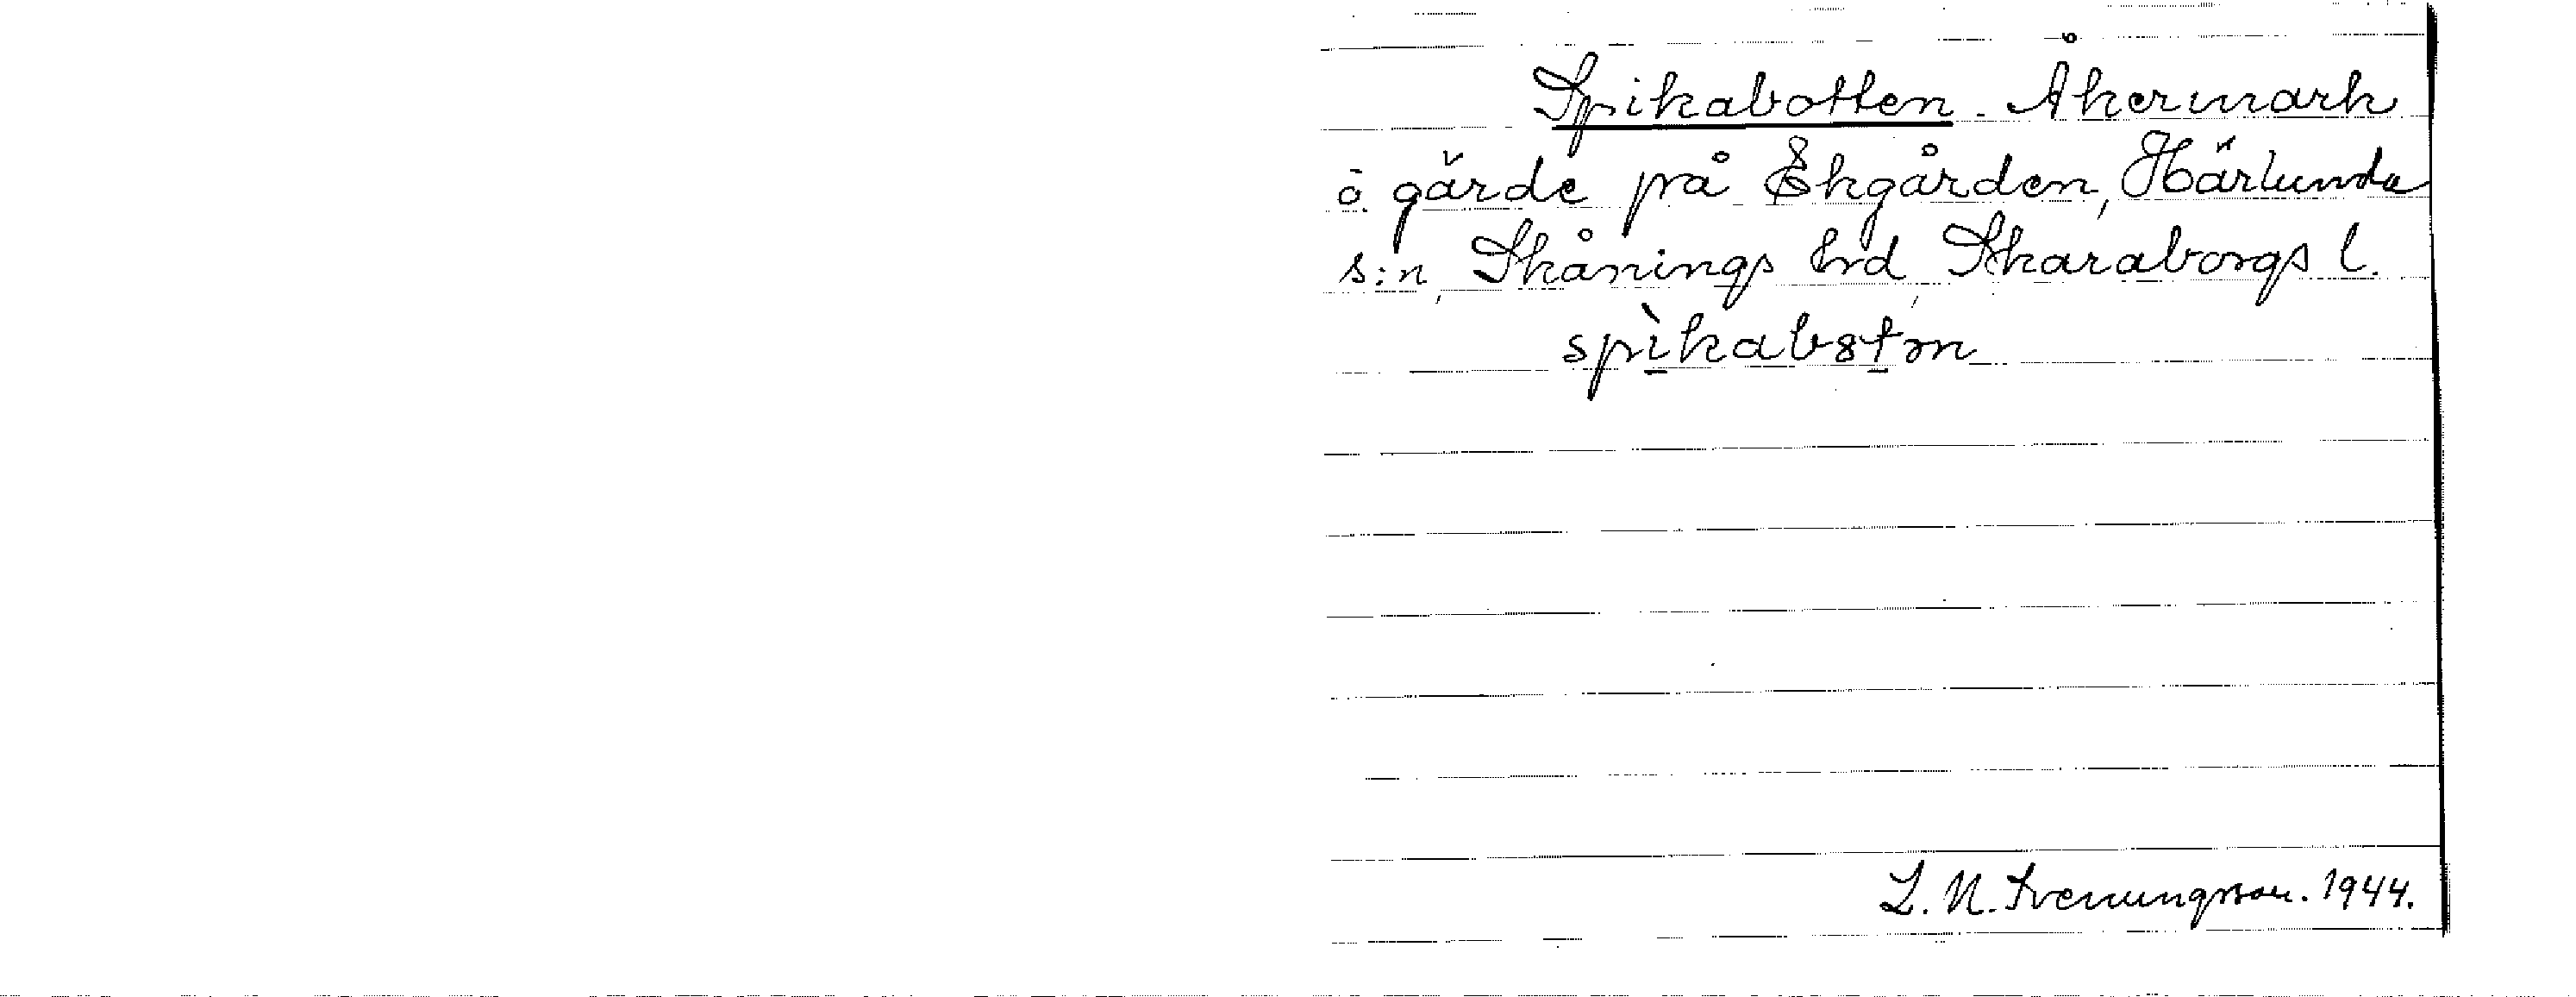 Spikabotten. Åkermark
å gärde på Ekgården, Härlunda
s:n, Skånings hrd, Skaraborgs l.
spìkab8tǝn
L. N. Svenungsson. 1944.